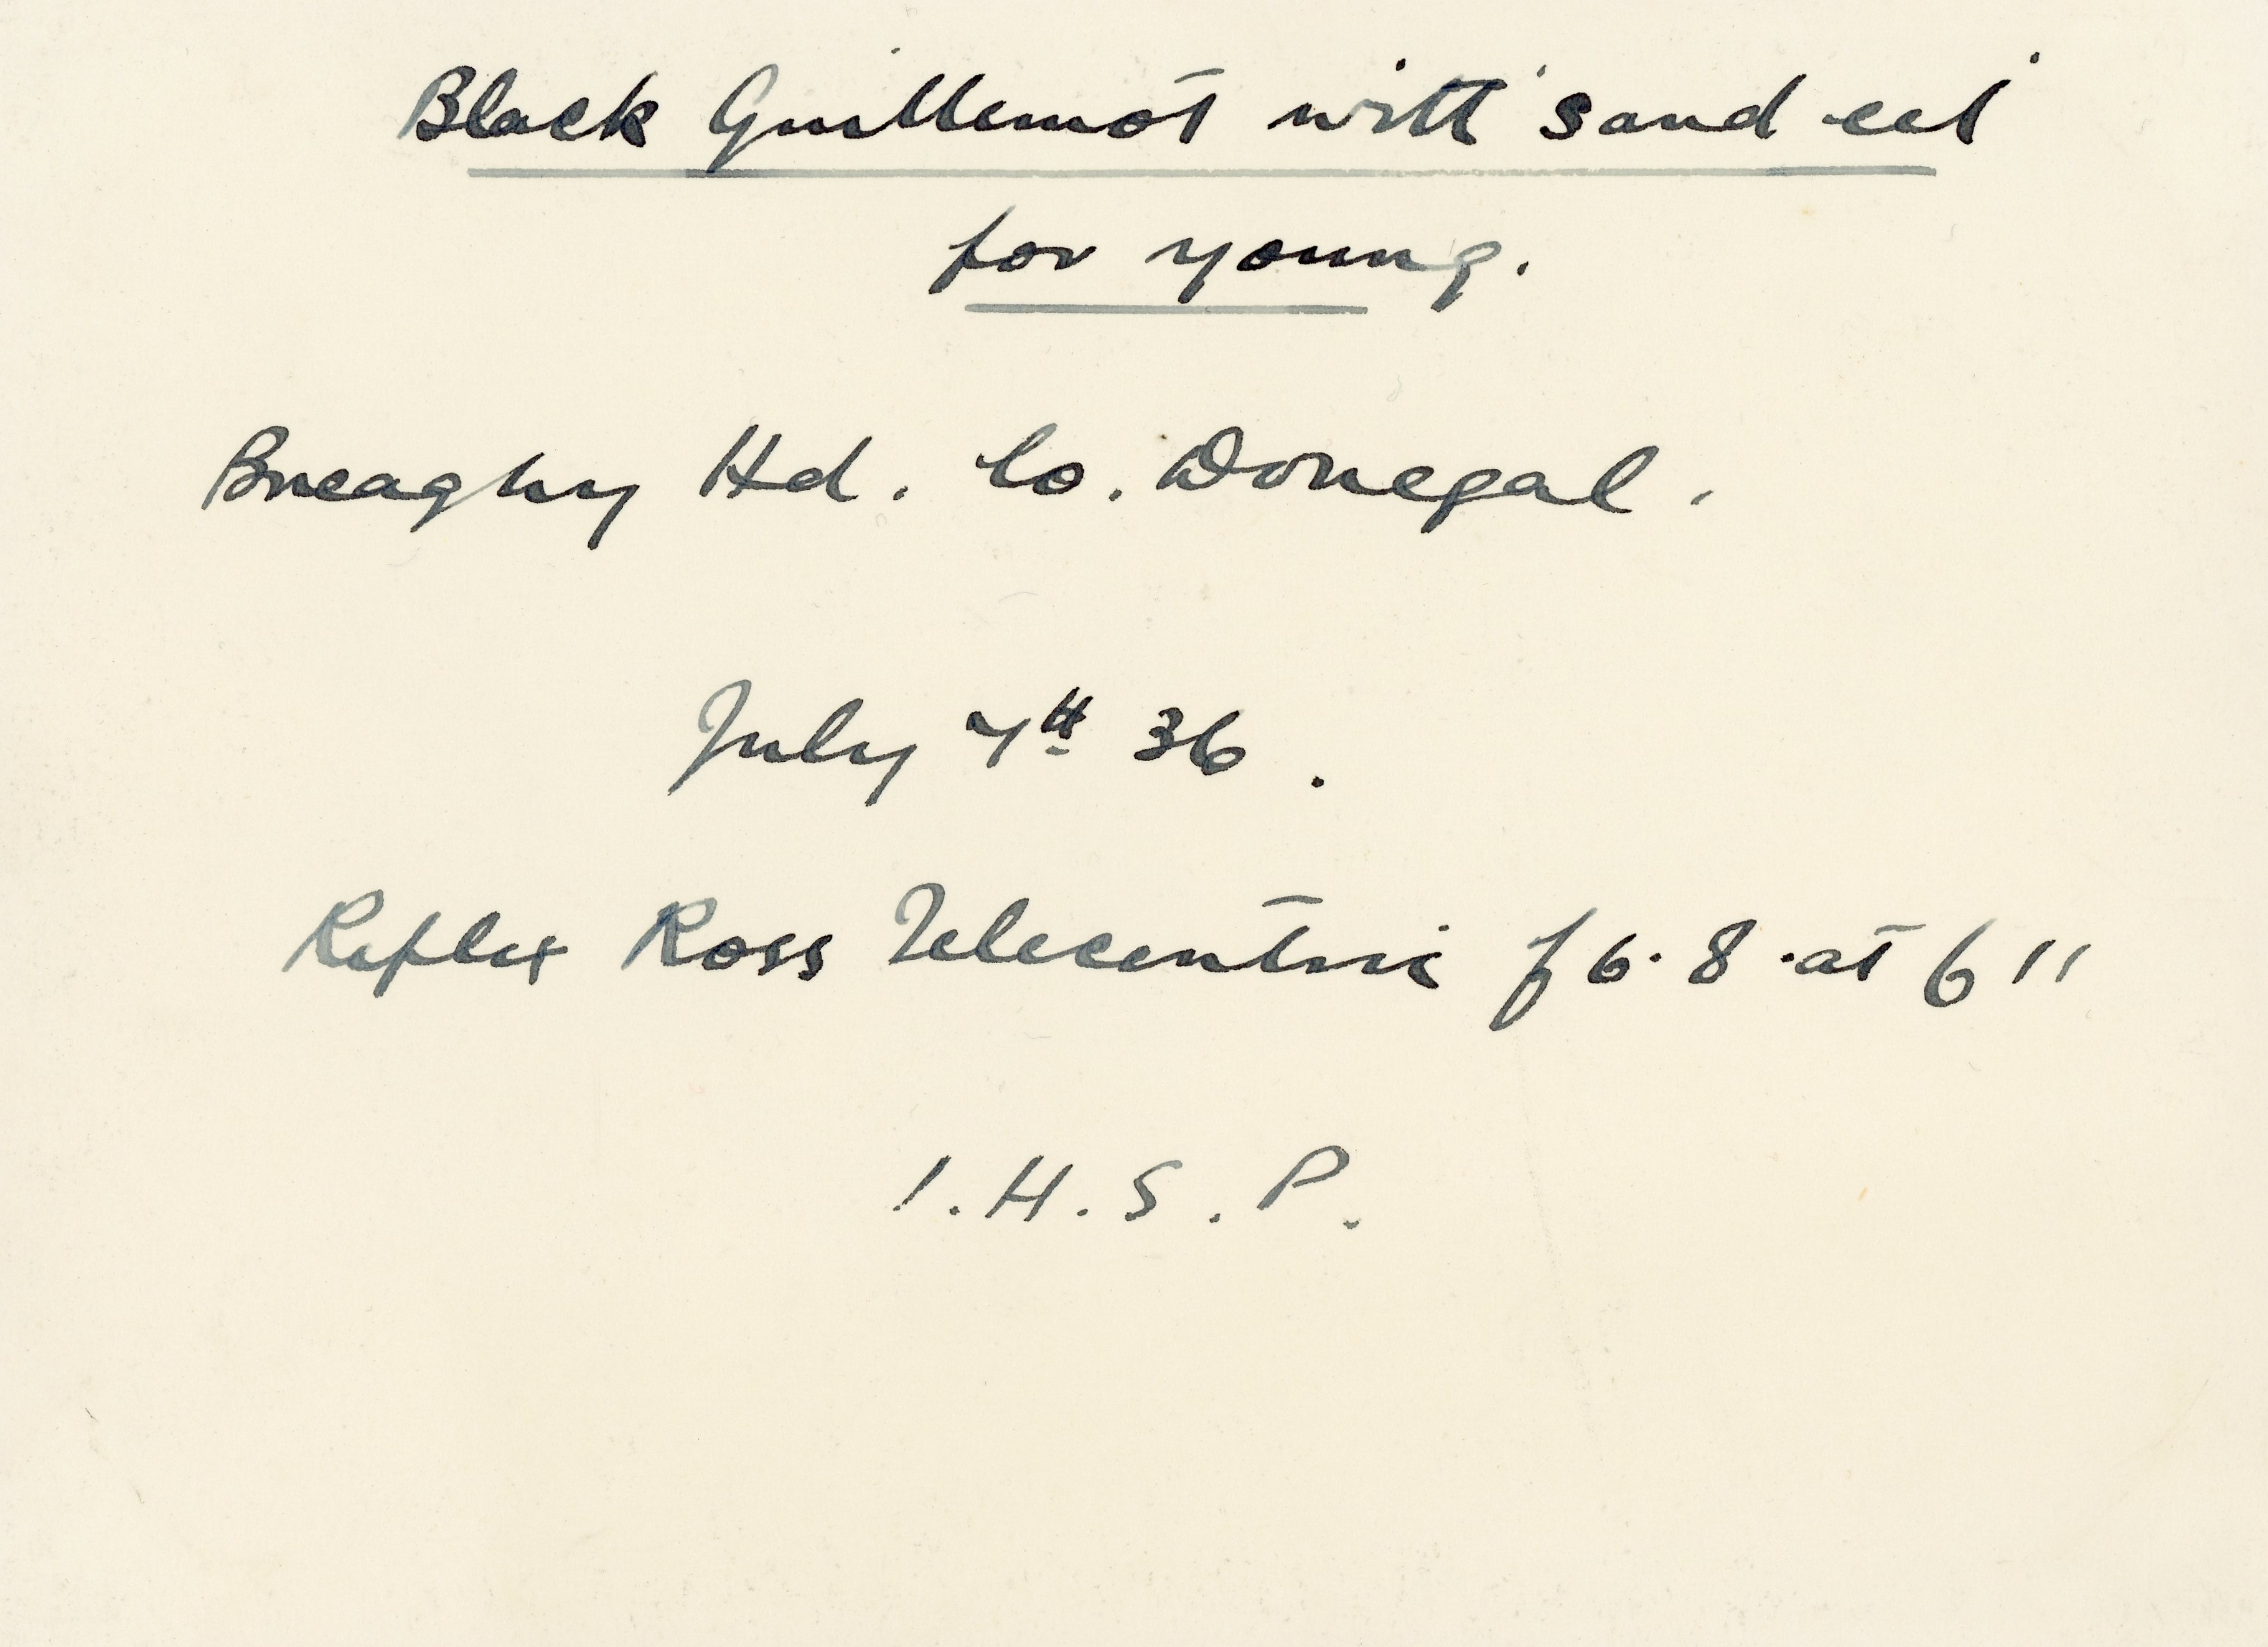 Black Guillemot with 'sand eel'
for young.
Breaghy Hd. Co. Donegal.
July 7th 36.
Reflex Ross Telecentric f6.8.at 6"
I.H.S.P.